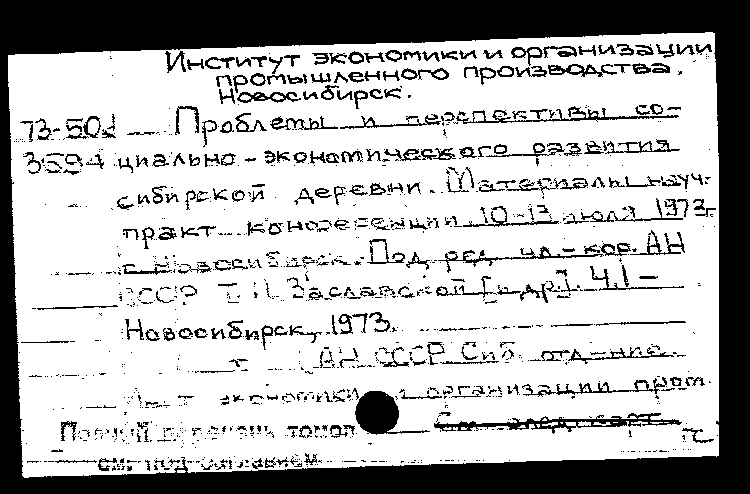 Институт экономики и организации
промышленного производства.
Новосибирск.
73-50д Проблемы и перспективы со-
3694 циально-экономического развития
сибирской деревни. Материалы науч.-
практ. конференции 10-13 июля 1973 г.
г. Новосибирск. Под ред. чл.-кор. АН
СССР Т.И. Заславской [и др.]. Ч.I –
Новосибирск, 1973.
т. (АН СССР. Сиб. отд-ние.
Ин-т экономики и организации пром.
Полный перечень томов См. след. карт.
см. под заглавием